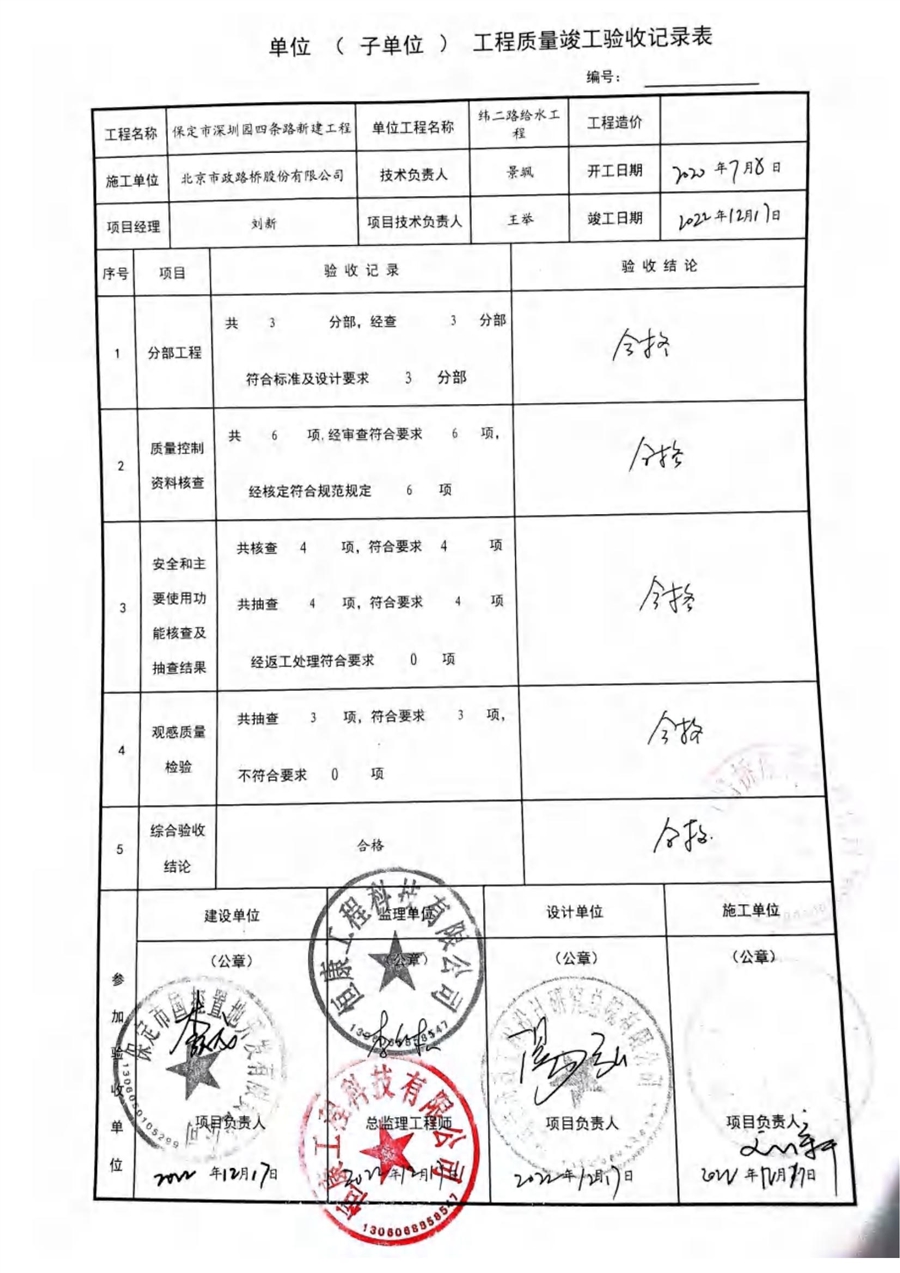 单位 （ 子单位 ） 工程质量竣工验收记录表
编号：
工程名称 保定市深圳园四条路新建工程 单位工程名称 纬二路给水工程 工程造价
施工单位 北京市政路桥股份有限公司 技术负责人 景飒 开工日期 2020年7月8日
项目经理 刘新 项目技术负责人 王举 竣工日期 2022年12月17日
序号 项目 验收记录 验收结论
1 分部工程 共 3 分部，经查 3 分部
符合标准及设计要求 3 分部
合格
2 质量控制资料核查 共 6 项,经审查符合要求 6 项，
经核定符合规范规定 6 项
合格
3 安全和主要使用功能核查及抽查结果 共核查 4 项，符合要求 4 项
共抽查 4 项，符合要求 4 项
经返工处理符合要求 0 项
合格
4 观感质量检验 共抽查 3 项，符合要求 3 项，
不符合要求 0 项
合格
5 综合验收结论 合格 合格
参加验收单位
建设单位 监理单位 设计单位 施工单位
（公章） （公章） （公章） （公章）
恒康工程科技有限公司
1306068858547
项目负责人 总监理工程师 项目负责人 项目负责人
刘新
2022年12月17日 2022年12月17日 2022年12月17日 2022年12月17日
恒康工程科技有限公司
1306068858547